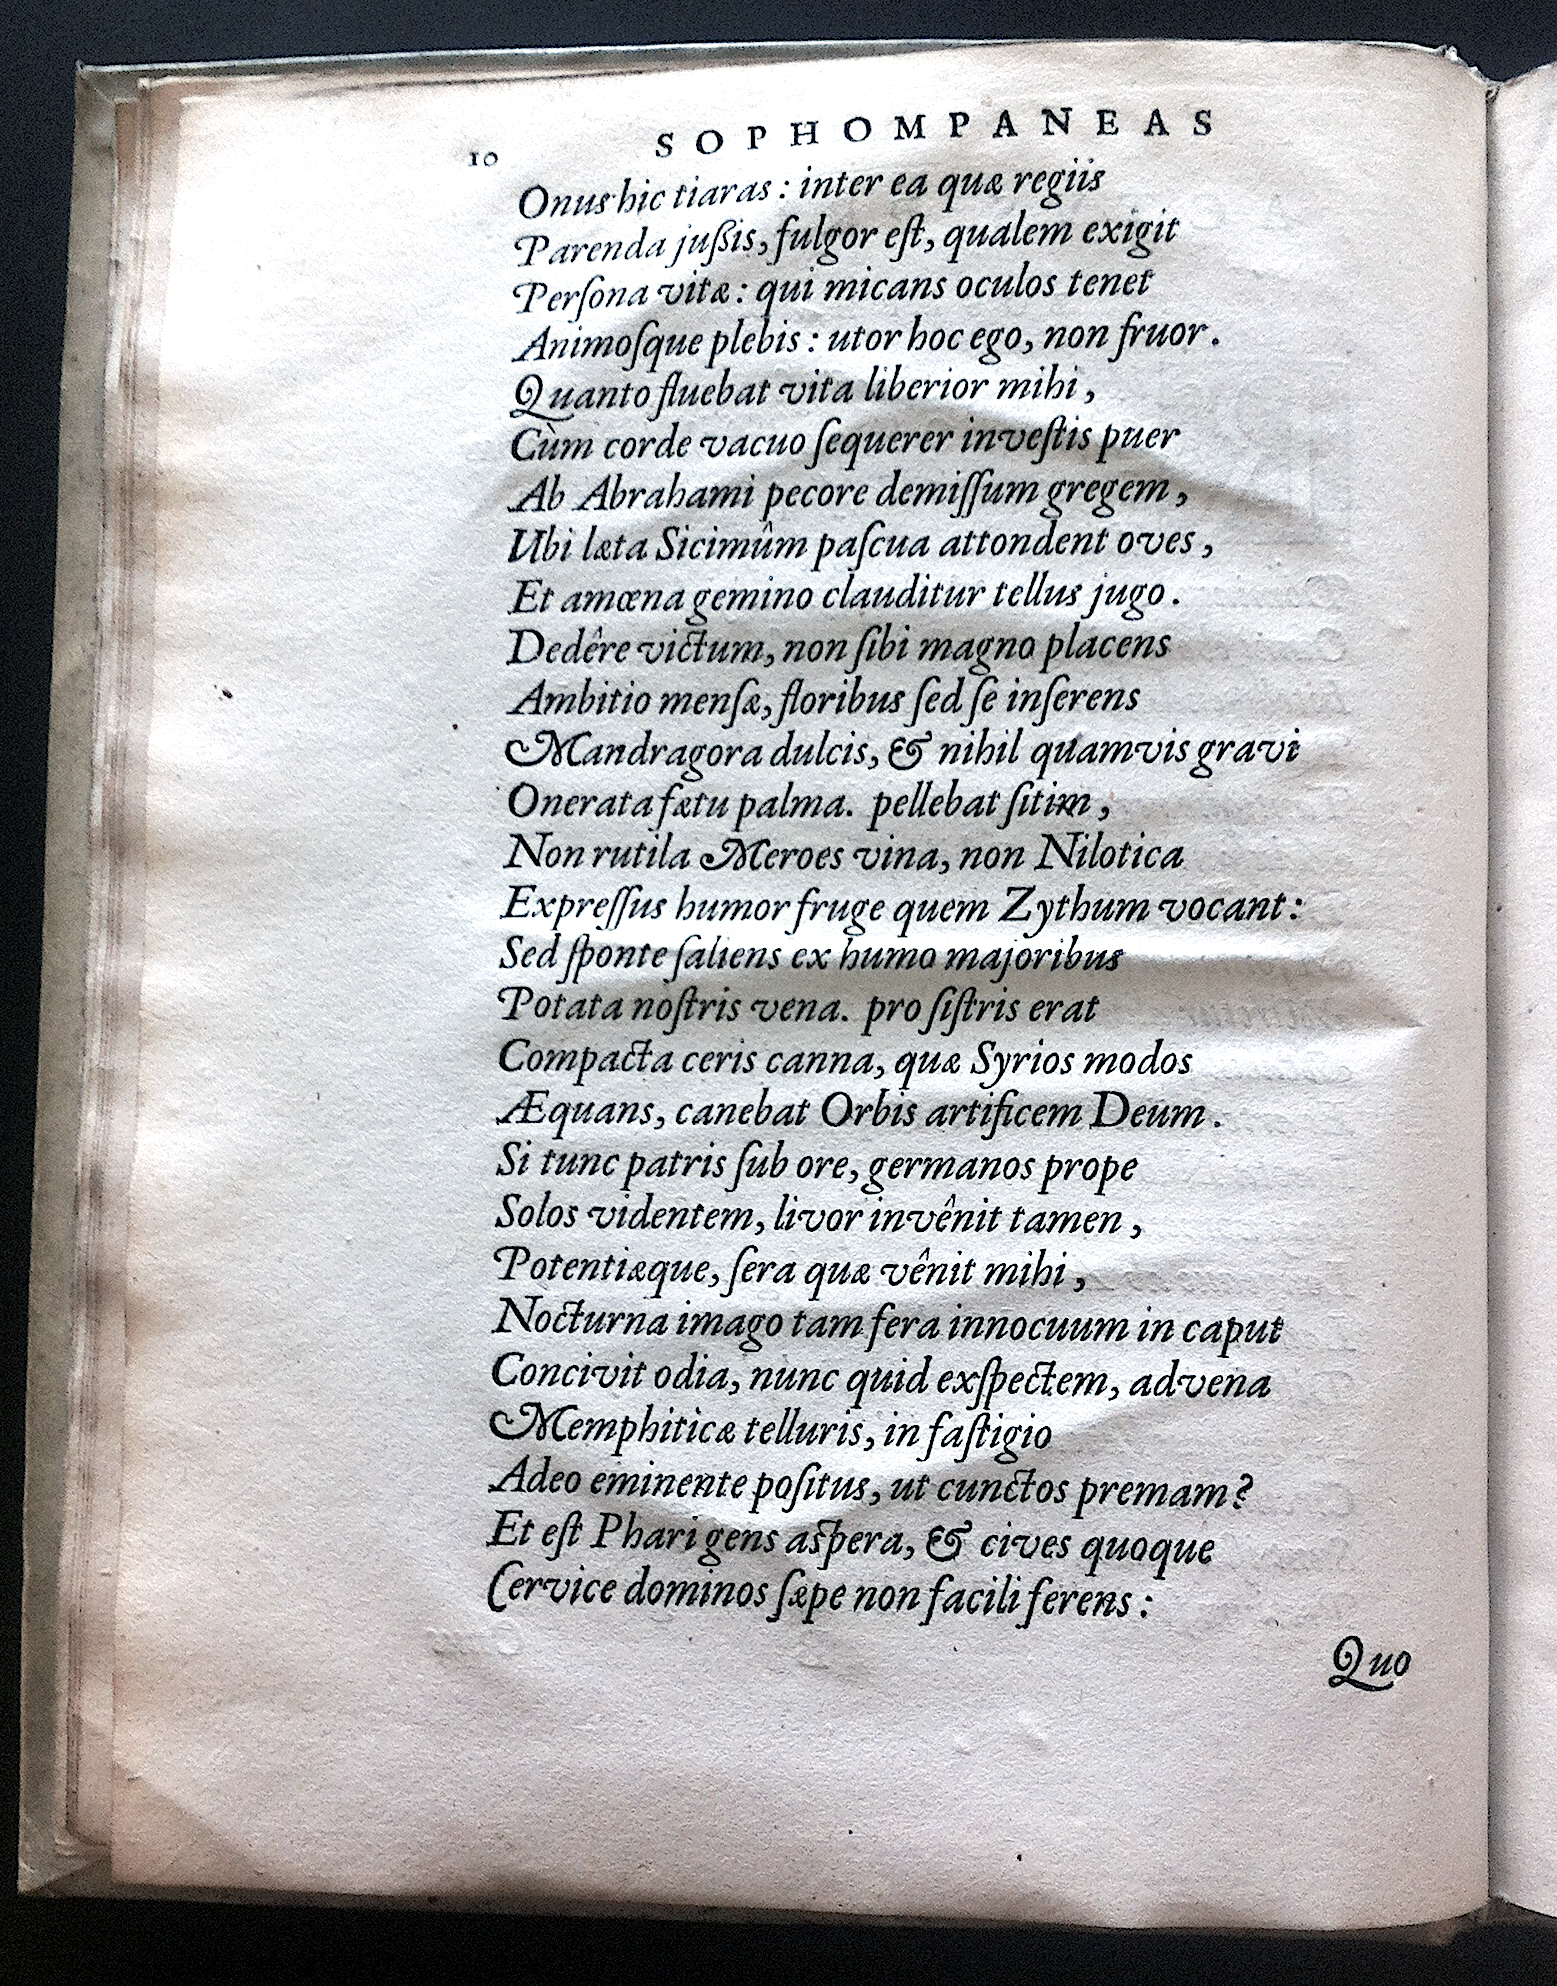 10 SOPHOMPANEAS
Onus hic tiaras : inter ea quæ regiis
Parenda jußis, fulgor eſt, qualem exigit
Perſona vitæ : qui micans oculos tenet
Animoſque plebis : utor hoc ego, non fruor.
Quanto fluebat vita liberior mihi,
Cùm corde vacuo ſequerer inveſtis puer
Ab Abrahami pecore demiſſum gregem,
Ubi læta Sicimûm paſcua attondent oves,
Et amœna gemino clauditur tellus jugo.
Dedêre victum, non ſibi magno placens
Ambitio menſæ, floribus ſed ſe inſerens
Mandragora dulcis, & nihil quamvis gravi
Onerata fætu palma. pellebat ſitim,
Non rutila Meroes vina, non Nilotica
Expreſſus humor fruge quem Zythum vocant :
Sed ſponte ſaliens ex humo majoribus
Potata noſtris vena. pro ſiſtris erat
Compacta ceris canna, quæ Syrios modos
Æquans, canebat Orbis artificem Deum.
Si tunc patris ſub ore, germanos prope
Solos videntem, livor invênit tamen,
Potentiæque, ſera quæ vênit mihi,
Nocturna imago tam fera innocuum in caput
Concivit odia, nunc quid exſpectem, advena
Memphiticæ telluris, in faſtigio
Adeo eminente poſitus, ut cunctos premam?
Et eſt Phari gens aſpera, & cives quoque
Cervice dominos ſæpe non facili ferens :
Quo